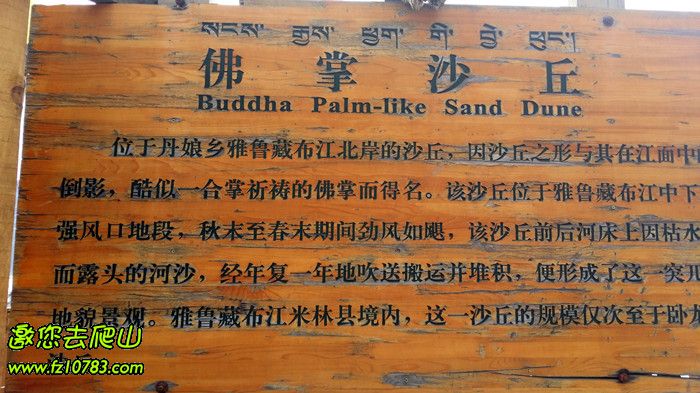 སངས་རྒྱས་ཕྱག་གི་བྱེ་ཕུང་།
佛掌沙丘
Buddha Palm-like Sand Dune
位于丹娘乡雅鲁藏布江北岸的沙丘，因沙丘之形与其在江面中
倒影，酷似一合掌祈祷的佛掌而得名。该沙丘位于雅鲁藏布江中下
强风口地段，秋末至春末期间劲风如飓，该沙丘前后河床上因枯水
而露头的河沙，经年复一年地吹送搬运并堆积，便形成了这一突兀
地貌景观。雅鲁藏布江米林县境内，这一沙丘的规模仅次于卧龙
邀您去爬山
www.fz10783.com